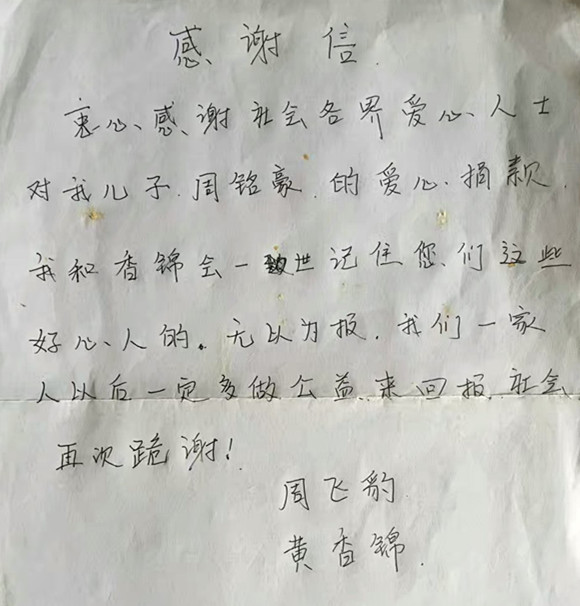 感谢信
衷心感谢社会各界爱心人士
对我儿子.周铭豪.的爱心捐款.
我和香锦会一世记住您们这些
好心人的。无以为报.我们一家
人以后一定多做公益.来回报社会.
再次跪谢!
周飞豹
黄香锦.